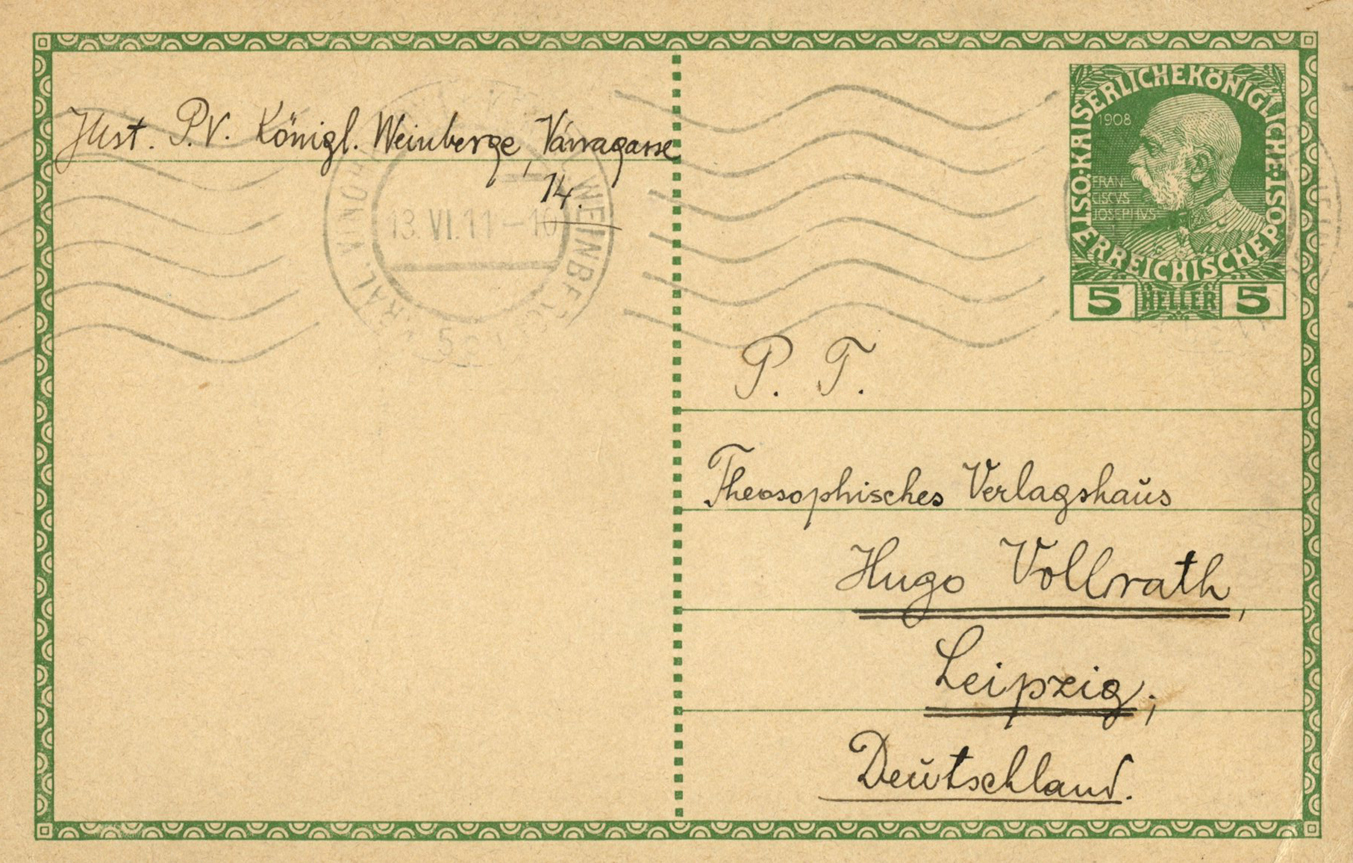 P. V. Königl. Weinberge,
14.
13. VI. 11 - 10
KRÁL. VINOHRADY
WEINBERGE
KAISERLICHEKÖNIGLICHE·ÖSTERREICHISCHE POST
1908
FRAN
CISCVS
JOSEPHVS
5 HELLER 5
P. T.
Theosophisches Verlagshaus
Hugo Vollrath,
Leipzig;
Deutschland.